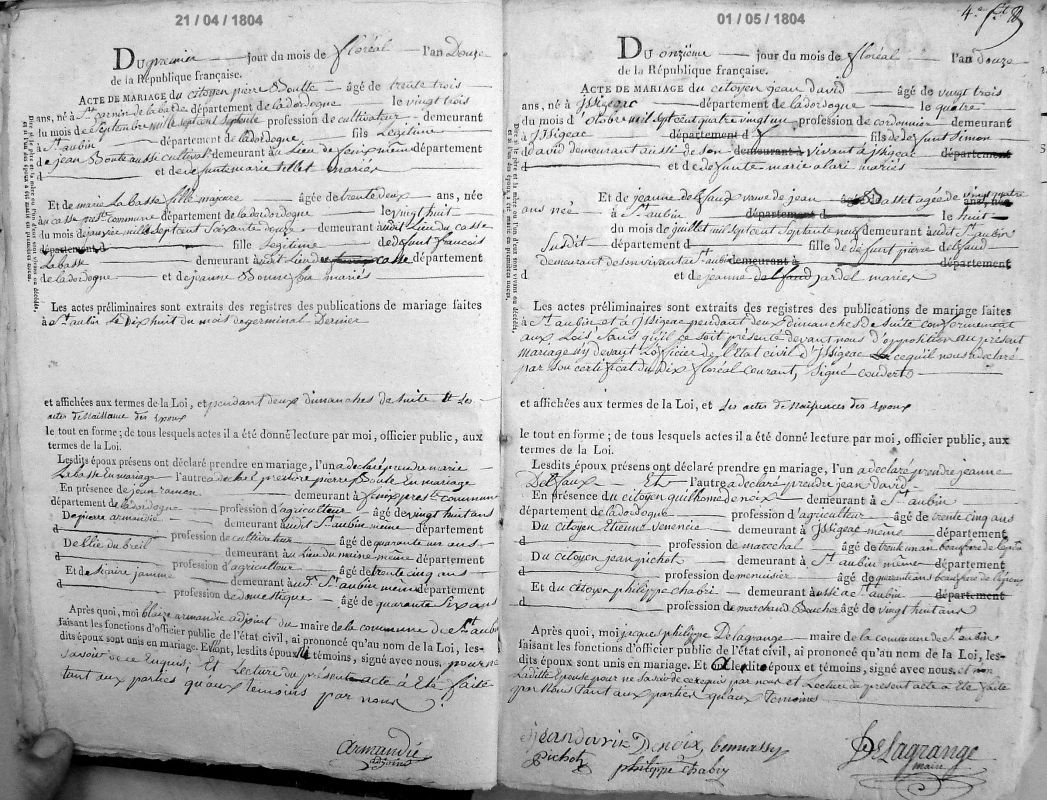 21 / 04 / 1804
Du premier jour du mois de floréal l'an Douze
de la République française.
ACTE DE MARIAGE du citoyen pierre Boutte âgé de trente trois
ans, né à département de la dordogne le vingt trois
du mois de Septembre mille sept cent septente profession de cultivateur demeurant
à St aubin département de la dordogne fils Legitime
de jean Boute aussi cultivat demeurant au Lieu de même département
d et de defunte marie tillet mariés
Et de marie Labasse fille majeure âgée de trente deux ans, née
au casse commune département de la dordogne le vingt huit
du mois de janvier mille sept cent soixante douze demeurant audit Lieu du casse
département d fille Legitime de defunt francois
Labasse demeurant audit Lieu casse département
de la dordogne et de jeanne mariés
Les actes préliminaires sont extraits des registres des publications de mariage faites
à St aubin le Dix huit du mois de germinal Dernier
et affichées aux termes de la Loi, et pendant deux dimanches de suite Les
actes de Naissance des Epoux
le tout en forme ; de tous lesquels actes il a été donné lecture par moi, officier public, aux
termes de la Loi.
Lesdits époux présens ont déclaré prendre en mariage, l'un a declaré prendre marie
Labasse En mariage l'autre a declaré prendre pierre Boutte En mariage
En présence de jean ramon demeurant à commune
département de la dordogne profession d'agriculteur âgé de vingt huit ans
De pierre armandie demeurant audit St aubin même département
d profession de cultivateur âgé de quarante un ans
De Elie du breil demeurant au Lieu du maine même département
d profession d'agriculteur âgé de trente cinq ans
Et de sicaire jamme demeurant audt St aubin même département
d profession de domestique âgé de quarante six ans
Après quoi, moi blaize armandie adjoint du maire de la commune de St aubin
faisant les fonctions d'officier public de l'état civil, ai prononcé qu'au nom de la Loi, les-
dits époux sont unis en mariage. Et ont, lesdits époux et témoins, signé avec nous, pour ne
savoir de ce Enquis, Et Lecture du present acte a Eté faite
tant aux parties qu'aux temoins par nous
armandie
adjoint
01 / 05 / 1804
4.e
Du onzieme jour du mois de floréal l'an douze
de la République française.
ACTE DE MARIAGE du citoyen jean david âgé de vingt trois
ans, né à Jssigeac département de la dordogne le quatre
du mois d'octobre mil sept cent quatre vingt un profession de cordonnier demeurant
à Jssigeac département d fils de defunt Simon
david demeurant aussi de son demeurant à vivant à Jssigeac département
d et de defunte marie alari mariés
Et de jeanne delfaud veuve de jean Basset agée de vingt quatre
ans née à St aubin département d le huit
du mois de juillet mil sept cent septante neuf demeurant audit St aubin
Susdit département d fille de defunt pierre delfaud
demeurant de son vivant a St aubin demeurant à département
d et de jeanne jardel mariés
Les actes préliminaires sont extraits des registres des publications de mariage faites
à St aubin et à Jssigeac pendant deux dimanches de suite conformement
aux Lois Sans qu'il se soit présenté devant nous d'opposition au present
mariage ny devant L'officier de L'Etat civil d'Jssigeac ce qu'il nous a declaré
par son certificat du Dix floréal courant, signé couderc
et affichées aux termes de la Loi, et Les actes de Naissances des Epoux
le tout en forme ; de tous lesquels actes il a été donné lecture par moi, officier public, aux
termes de la Loi.
Lesdits époux présens ont déclaré prendre en mariage, l'un a declaré prendre jeanne
Delfaux Et l'autre a declaré prendre jean david
En présence du citoyen guilhome denoix demeurant à St aubin
département de la dordogne profession d'agriculteur âgé de trente cinq ans
Du citoyen Etienne venencie demeurant à Jssigeac même département
d profession de marechal âgé de trente un an beaufrere de
Du citoyen jean pichot demeurant à St aubin même département
d profession de menuisier âgé de quarante ans beaufrere de
Et du citoyen philippe chabri demeurant aussi a St aubin département
d profession de marchand Boucher âgé de vingt huit ans
Après quoi, moi jacques philippe Delagrange maire de la commune de St aubin
faisant les fonctions d'officier public de l'état civil, ai prononcé qu'au nom de la Loi, les-
dits époux sont unis en mariage. Et a lesdits époux et témoins, signé avec nous, et non
Laditte Epouse pour ne savoir de ce requis par nous et Lecture du present acte a Eté faite
par Nous tant aux parties qu'aux temoins
jean david Denoix, bennassy
pichot philippe chabry
Delagrange
maire